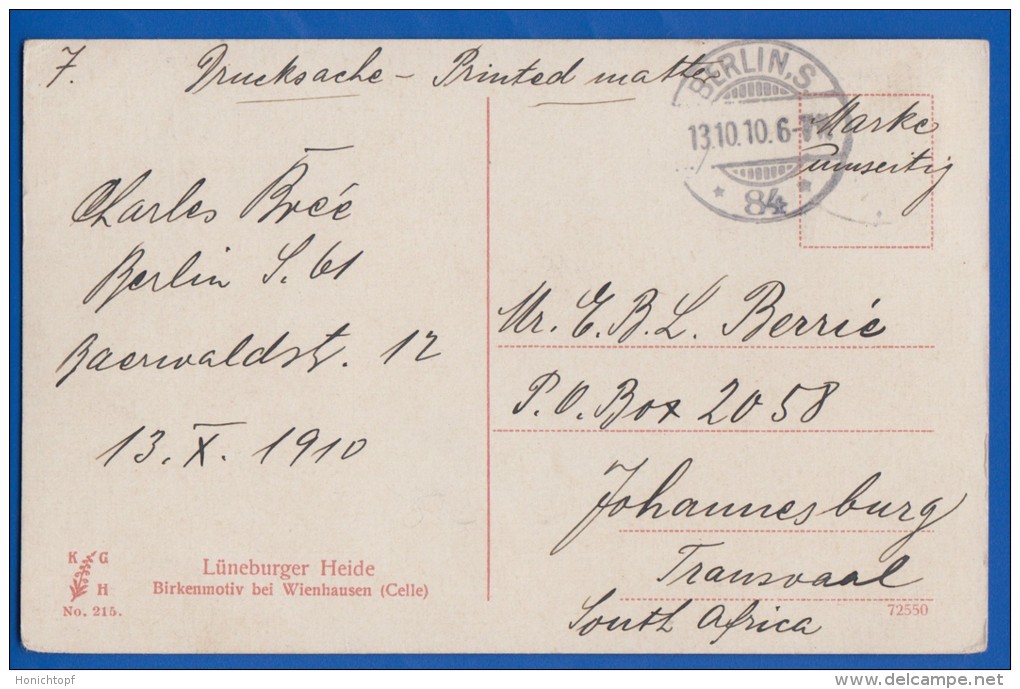 7. Drucksache - Printed matter
BERLIN, S.
13.10.10. 6-7N.
* 84 *
Marke
umseitig
Charles Brée
Berlin S. 61
Baerwaldst. 12
13. X. 1910
Mr. E. B. L. Berrié
P. O. Box 2058
Johannesburg
Transvaal
South Africa
K G
H
No. 215.
Lüneburger Heide
Birkenmotiv bei Wienhausen (Celle)
72550
Honichtopf
www.delcampe.net